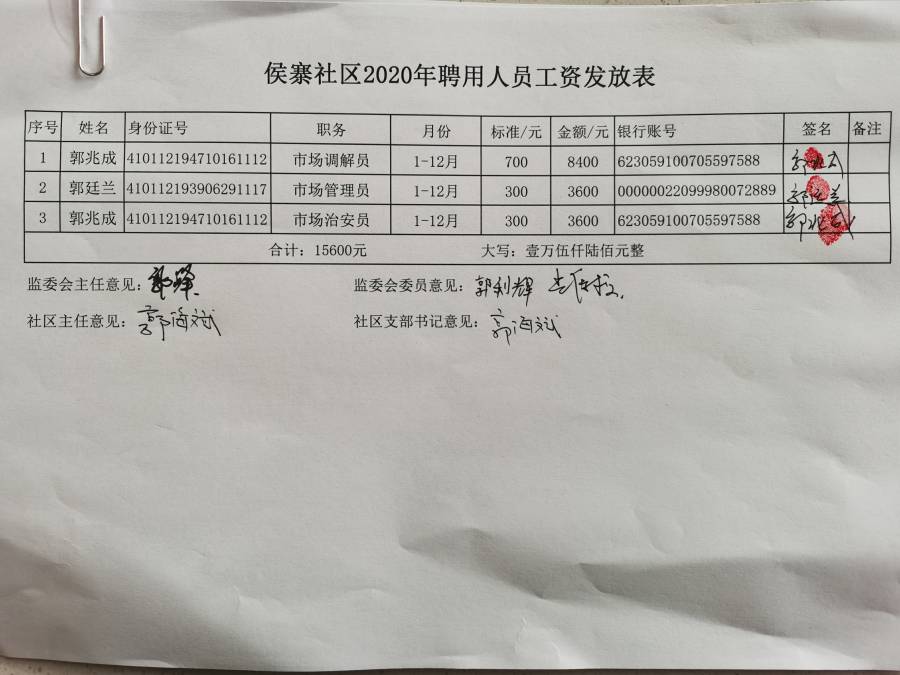 侯寨社区2020年聘用人员工资发放表
序号 姓名 身份证号 职务 月份 标准/元 金额/元 银行账号 签名 备注
1 郭兆成 410112194710161112 市场调解员 1-12月 700 8400 623059100705597588 郭兆成
2 郭廷兰 410112193906291117 市场管理员 1-12月 300 3600 00000022099980072889 郭廷兰
3 郭兆成 410112194710161112 市场治安员 1-12月 300 3600 623059100705597588 郭兆成
合计：15600元 大写：壹万伍仟陆佰元整
监委会主任意见： 监委会委员意见：郭利辉
社区主任意见：郭海斌 社区支部书记意见：郭海斌